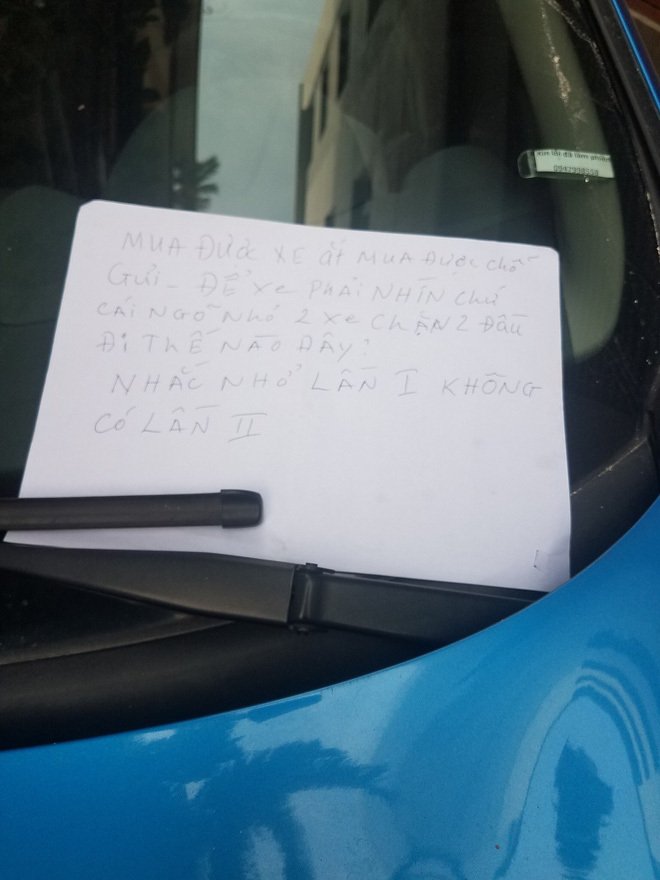 xin lỗi đã làm phiền
0947998558
MUA ĐƯỢC XE ắT MUA ĐƯỢC chỗ
Gửi - ĐỂ Xe PHẢI NHÌN chứ
CÁI NGÕ NHỎ 2 Xe CHẶN 2 Đầu
Đi THẾ NÀO ĐÂY?
NHẮC NHỞ LẦN I KHÔNG
CÓ LẦN II